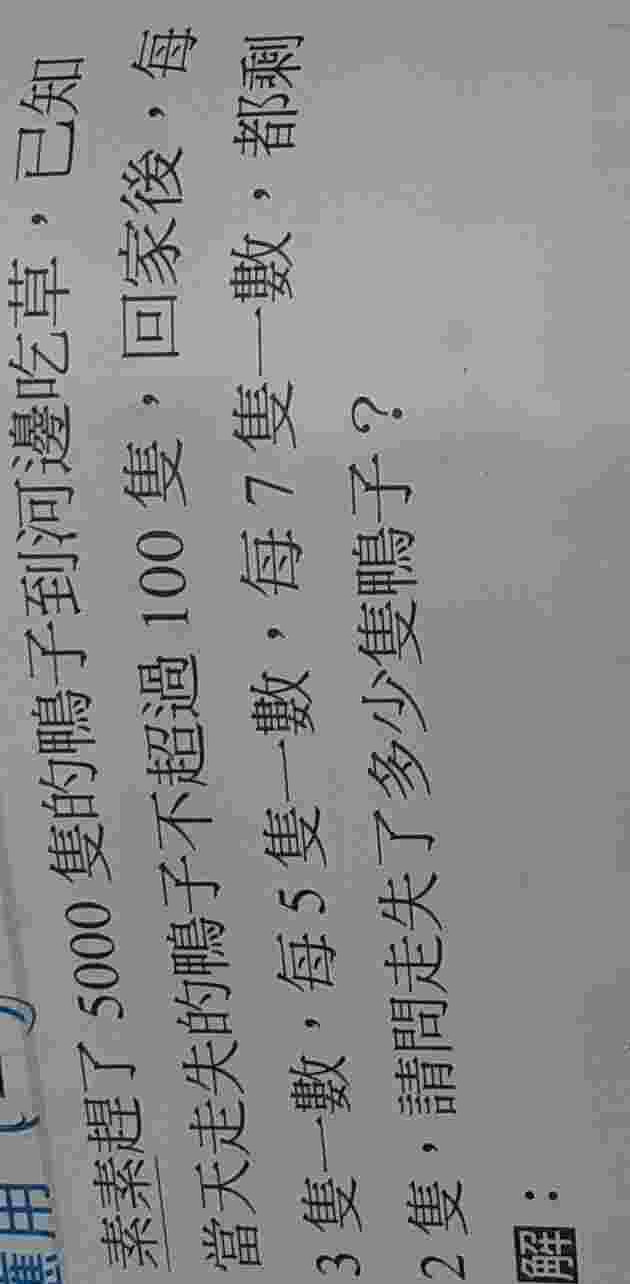 應用（一）
素素趕了 5000 隻的鴨子到河邊吃草，已知
當天走失的鴨子不超過 100 隻，回家後，每
3 隻一數，每 5 隻一數，每 7 隻一數，都剩
2 隻，請問走失了多少隻鴨子？
解：